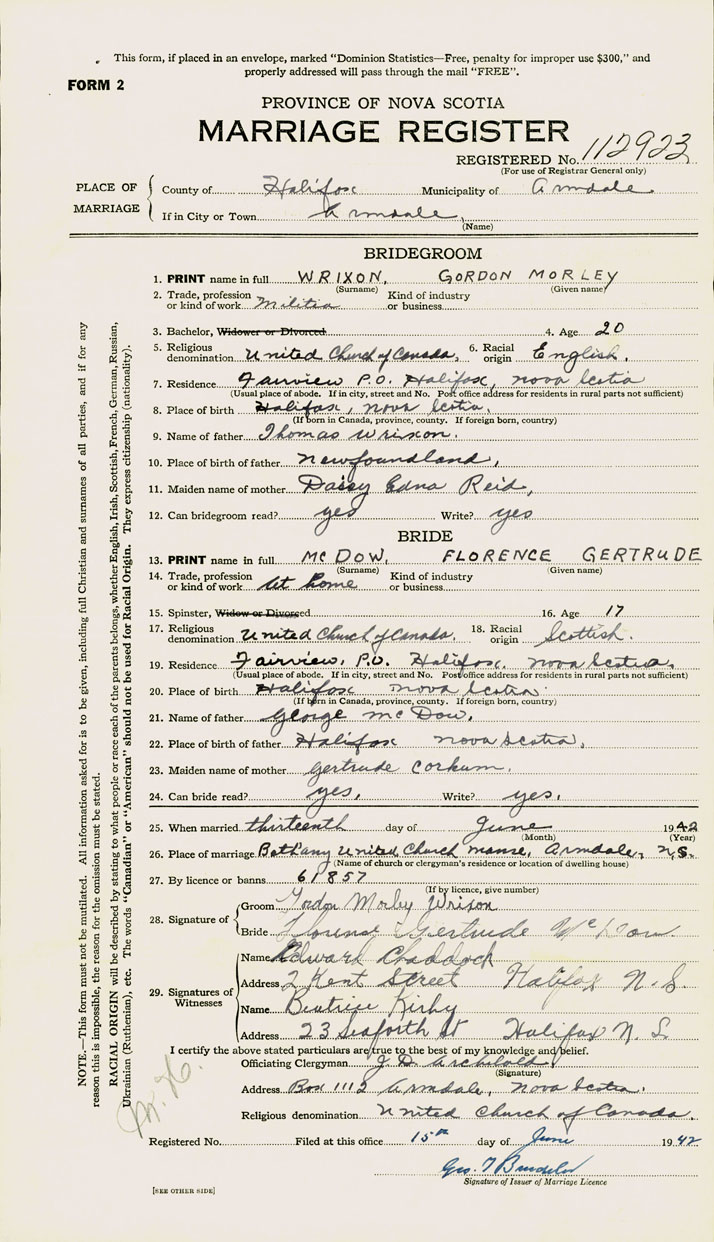 This form, if placed in an envelope, marked "Dominion Statistics—Free, penalty for improper use $300," and
properly addressed will pass through the mail "FREE".
FORM 2
PROVINCE OF NOVA SCOTIA
MARRIAGE REGISTER
REGISTERED No. 112923
(For use of Registrar General only)
PLACE OF MARRIAGE
County of Halifax Municipality of Armdale
If in City or Town Armdale,
(Name)
BRIDEGROOM
1. PRINT name in full WRIXON, GORDON MORLEY
(Surname) (Given name)
2. Trade, profession or kind of work Militia Kind of industry or business
3. Bachelor, Widower or Divorced 4. Age 20
5. Religious denomination United Church of Canada, 6. Racial origin English,
7. Residence Fairview P.O. Halifax, Nova Scotia
(Usual place of abode. If in city, street and No. Post office address for residents in rural parts not sufficient)
8. Place of birth Halifax, Nova Scotia,
(If born in Canada, province, county. If foreign born, country)
9. Name of father Thomas Wrixon.
10. Place of birth of father Newfoundland,
11. Maiden name of mother Daisy Edna Reid,
12. Can bridegroom read? yes Write? yes
BRIDE
13. PRINT name in full MCDOW, FLORENCE GERTRUDE
(Surname) (Given name)
14. Trade, profession or kind of work At home Kind of industry or business
15. Spinster, Widow or Divorced 16. Age 17
17. Religious denomination United Church of Canada. 18. Racial origin Scottish.
19. Residence Fairview, P.O. Halifax, Nova Scotia,
(Usual place of abode. If in city, street and No. Post office address for residents in rural parts not sufficient)
20. Place of birth Halifax Nova Scotia
(If born in Canada, province, county. If foreign born, country)
21. Name of father George McDow,
22. Place of birth of father Halifax Nova Scotia,
23. Maiden name of mother Gertrude Corkum.
24. Can bride read? yes, Write? yes,
25. When married thirteenth day of June 1942
(Month) (Year)
26. Place of marriage Bethany United Church manse, Armdale, N.S.
(Name of church or clergyman's residence or location of dwelling house)
27. By licence or banns 61857
(If by licence, give number)
28. Signature of
Groom Gordon Morley Wrixon
Bride Florence Gertrude McDow.
29. Signatures of Witnesses
Name Edward Chaddock
Address 2 Kent Street Halifax N.S.
Name Beatrice Kirby
Address 23 Seaforth St Halifax N.S.
I certify the above stated particulars are true to the best of my knowledge and belief.
Officiating Clergyman J. D. Archibald
(Signature)
Address Box 1112 Armdale, Nova Scotia.
Religious denomination United Church of Canada.
Registered No. Filed at this office 15th day of June 1942
Geo. T
Signature of Issuer of Marriage Licence
[SEE OTHER SIDE]
NOTE.—This form must not be mutilated. All information asked for is to be given, including full Christian and surnames of all parties, and if for any
reason this is impossible, the reason for the omission must be stated.
RACIAL ORIGIN will be described by stating to what people or race each of the parents belongs, whether English, Irish, Scottish, French, German, Russian,
Ukrainian (Ruthenian), etc. The words "Canadian" or "American" should not be used for Racial Origin. They express citizenship (nationality).